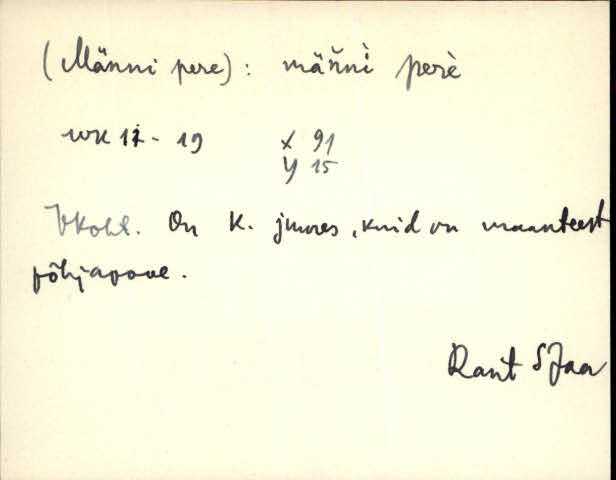 (Männi pere): mäňnì perè
WK 17 - 19 X 91
Y 15
Vkoht. On K. juures, kuid on maanteest
põhjapool.
Rant SJaa